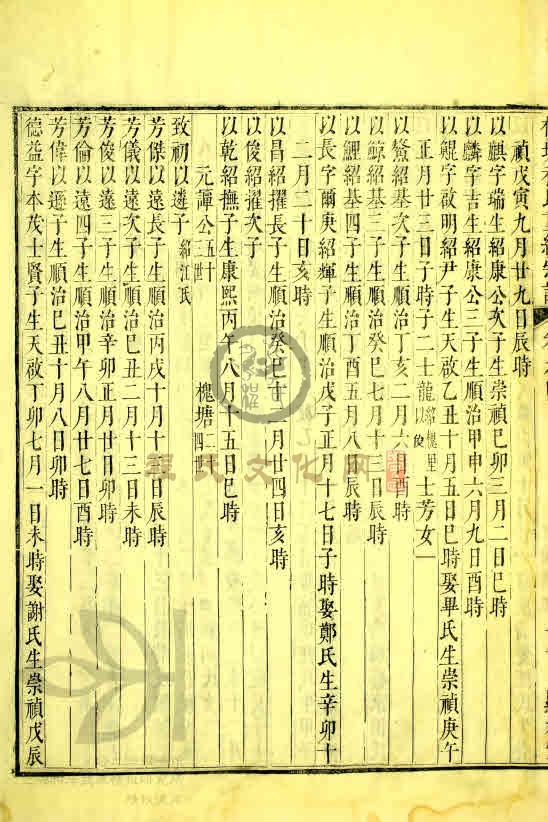 禎戊寅九月廿九日辰時
以麒字瑞生紹康公次子生崇禎己卯三月二日巳時
以麟字吉生紹康公三子生順治甲申六月九日酉時
以鯤字啟明紹尹子生天啟乙丑十月五日巳時娶畢氏生崇禎庚午
正月廿三日子時子二士龍士芳女一
以鰲紹基次子生順治丁亥二月六日酉時
以鯨紹基三子生順治癸巳七月十三日辰時
以鯉紹基四子生順治丁酉五月八日辰時
以長字爾庚紹輝子生順治戊子正月十七日子時娶鄭氏生辛卯十
二月二十日亥時
以昌紹擢長子生順治癸巳十二月廿四日亥時
以俊紹擢次子
以乾紹撫子生康熙丙午八月十五日巳時
元譚公五十三世 槐塘二十四世
致初以遴子紹江氏
芳傑以遠長子生順治丙戌十月十三日辰時
芳儀以遠次子生順治己丑二月十三日未時
芳俊以遠三子生順治辛卯正月廿日卯時
芳倫以遠四子生順治甲午八月廿七日酉時
芳偉以遜子生順治己丑十月八日卯時
德益字本茂士賢子生天啟丁卯七月一日未時娶謝氏生崇禎戊辰
程氏文化网